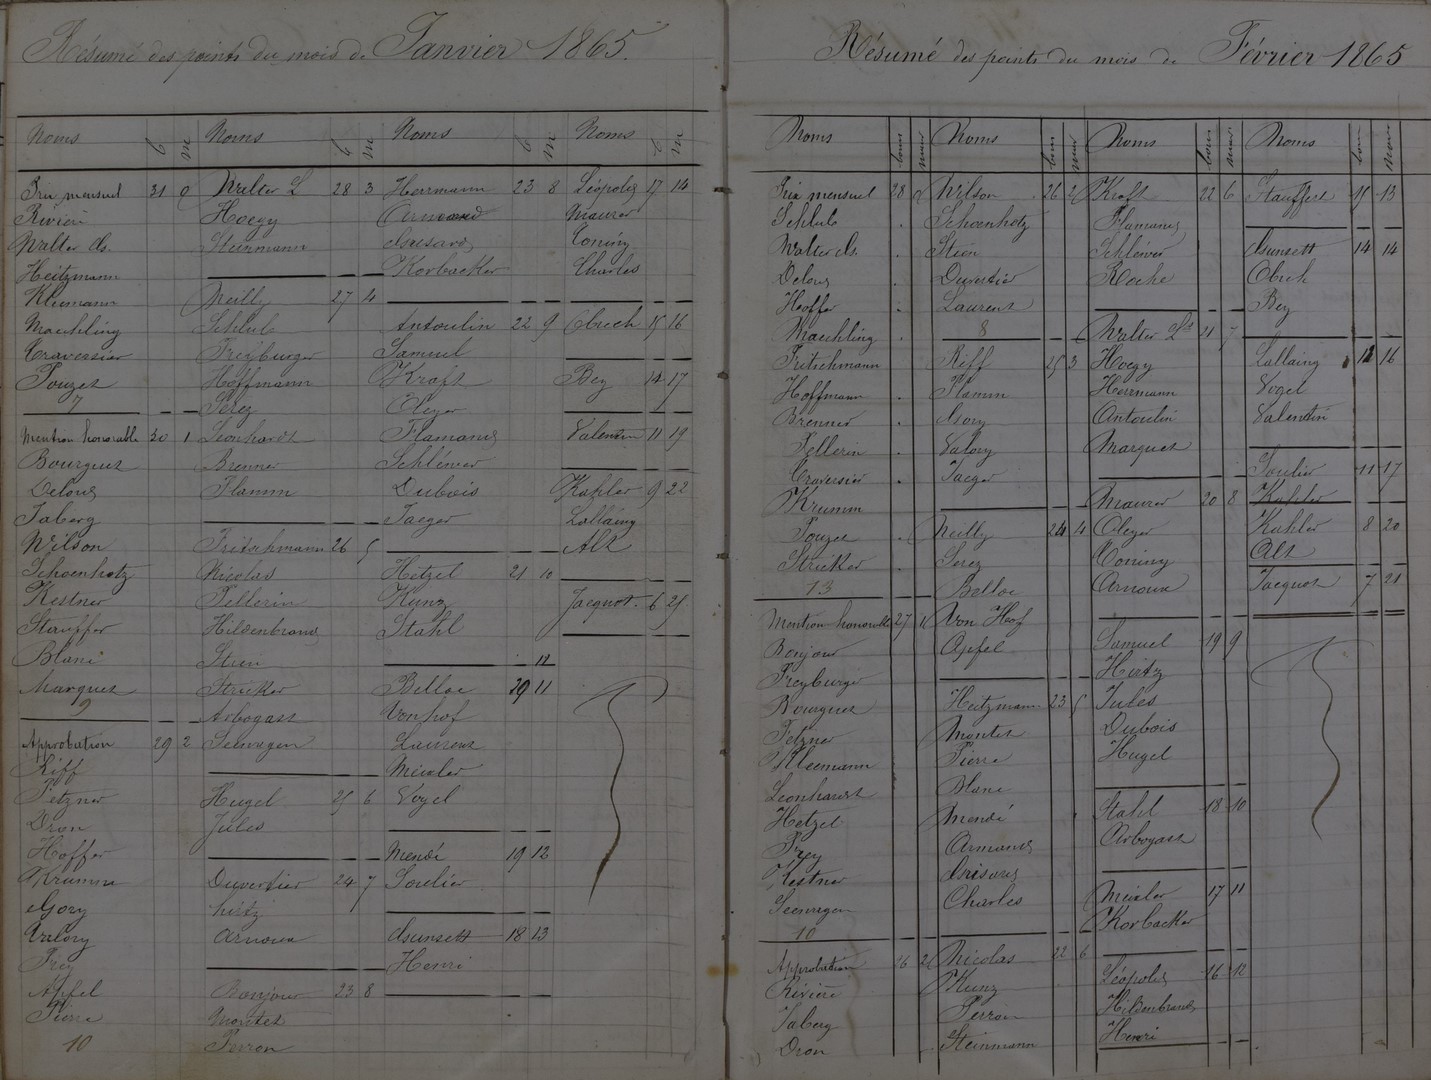 Résumé des points du mois de Janvier 1865.
Noms b m Noms b m Noms b m Noms b m
Prix mensuel 31 0 Walter L 28 3 Herrmann 23 8 Léopold 17 14
Rivière Hoegy Armand Maurer
Walter ch. Steinmann Coning
Heitzmann Korbacker Charles
Kleemann Meilly 27 4
Maechling Schlub Antoulin 22 9 Obrech 15 16
Traversier Freyburger Samuel
Pouzet Hoffmann Kraft Bey 14 17
7 Serez Oleyer
Mention honorable 30 1 Leonhardt Flamand Valentin 11 19
Bourguet Brenner Schlénier
Delong Flamm Dubois Kahler 9 22
Taberg Jaeger Lallaing
Wilson Fritschmann 26 5 Alt
Schoenhotz Nicolas Hetzel 21 10
Kestner Pellerin Kunz Jacquot 6 25
Stauffer Hildenbrand Stahl
Blanc Stein
Marquet Stricker Belloc 20 11
9 Arbogast Vonhof
Approbation 29 2 Seewagen Laurent
Riff Meixler
Petzner Hugel 25 6 Vogel
Dron Jules
Hoffer Mendé 19 12
Krumm Duvertier 24 7 Soulier
Gory hirtz
Valory Arnoux dsunsett 18 13
Frey Henri
Apfel Bonjour 23 8
Pierre Montet
10 Perron
Résumé des points du mois de Février 1865
Noms bon mau Noms bon mau Noms bon mau Noms bon mau
Prix mensuel 28 0 Wilson 26 2 Kraft 22 6 Stauffert 15 13
Schlub Schoenhotz Flamand
Walter ch. Stein Schlénier dsunsett 14 14
Delong Duvertier Roche Obrech
Hoffer Laurent Bey
Maechling 8 Walter Ld 21 7
Fritschmann Riff 25 3 Hoegy Lallaing 12 16
Hoffmann Flamm Herrmann Vogel
Brenner Gory Antoulin Valentin
Pellerin Valory Marquet
Traversier Jaeger Soulier 11 17
Krumm Maurer 20 8 Kahler
Pouzet Meilly 24 4 Oleyer Kahler 8 20
Stricker Serez Coning Alt
13 Belloc Arnoux Jacquot 7 21
Mention honorable 27 1 Von Hof
Bonjour Apfel Samuel 19 9
Freyburger Hirtz
Bourguet Heitzmann 23 5 Jules
Petzner Montet Dubois
Kleemann Pierre Hugel
Leonhardt Blanc
Hetzel Mendé Stahl 18 10
Frey Armand Arbogast
Kestner
Seewagen Charles Meixler 17 11
10 Korbacker
Approbation 26 2 Nicolas 22 6
Rivière Kunz Léopold 16 12
Taberg Perron Hildenbrand
Dron Steinmann Henri